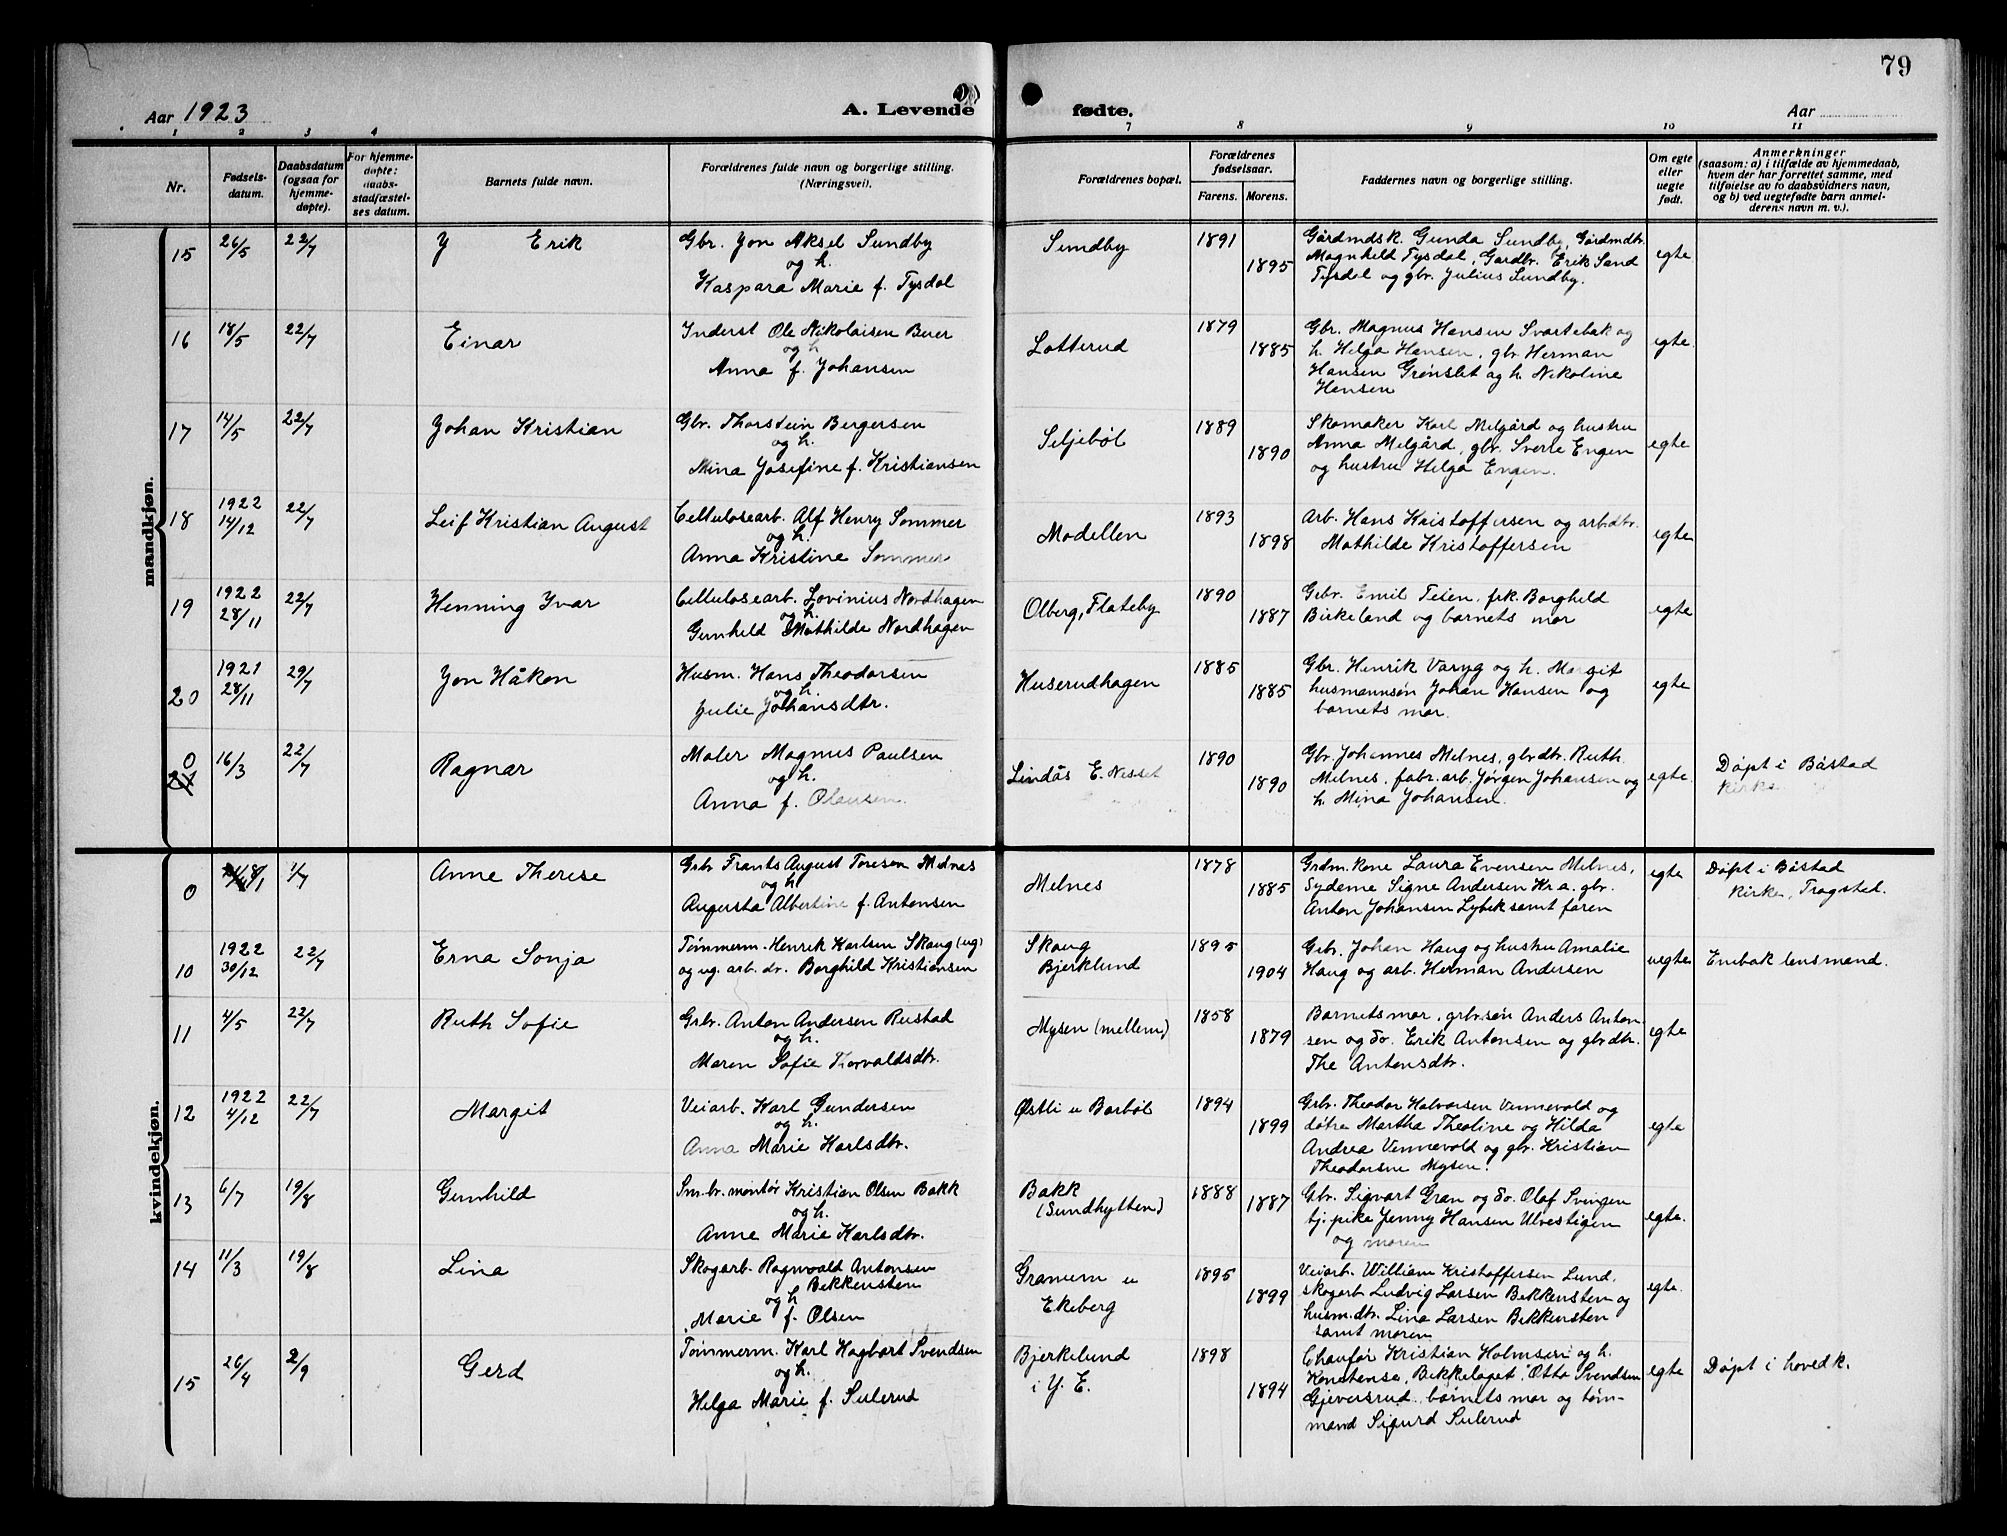 79
Aar 1923
A. Levende
fødte.
Aar
1 2 3 4 7 8 9 10 11
Nr.
Fødsels-
datum.
Daabsdatum
(ogsaa for
hjemme-
døpte).
For hjemme-
døpte:
daabs-
stadfæstel-
ses datum.
Barnets fulde navn.
Forældrenes fulde navn og borgerlige stilling.
(Næringsvei).
Forældrenes bopæl.
Forældrenes
fødselsaar.
Farens. Morens.
Faddernes navn og borgerlige stilling.
Om egte
eller
uegte
født.
Anmerkninger
(saasom: a) i tilfælde av hjemmedaab,
hvem der har forrettet samme, med
tilføielse av to daabsvidners navn,
og b) ved uegtefødte barn anmel-
derens navn m. v.).
mandkjøn.
15 26/5 22/7 Y Erik
Gbr. Jon Aksel Sundby
og h.
Kaspara Marie f. Tysdal
Sundby 1891 1895
Gårdmdsk. Gunda Sundby, Gårdmdtr.
Magnhild Tysdal, Gardbr. Erik Sand
Tysdal og gbr. Julius Sundby.
egte
16 18/5 22/7 Einar
Inderst Ole Nikolaisen Buer
og h
Anna f. Johansen
Lotterud 1879 1885
Gbr. Magnus Hansen Svartebak og
h. Helga Hansen, gbr Herman
Hansen Grønslet og h. Nikoline
Hansen
egte
17 14/5 22/7 Johan Kristian
Gbr. Thorstein Bergersen
og h.
Mina Josefine f. Kristiansen
Siljebøl 1889 1890
Skomaker Karl Melgård og hustru
Anna Melgård, gbr. Sverre Engen
og hustru Helga Engen.
egte
18 1922 14/12 22/7 Leif Kristian August
Cellulosearb. Alf Henry Sommer
og h.
Anna Kristine Sommer
Modellen 1893 1898
Arb. Hans Kristoffersen og arbdtr.
Mathilde Kristoffersen
egte
19 1922 28/11 22/7 Henning Yvar
Cellulosearb. Lovinius Nordhagen
og h.
Gunhild Mathilde Nordhagen
Olberg, Flateby 1890 1887
Grbr. Emil Teien, frk. Borghild
Birkeland og barnets mor
egte
20 1921 28/11 29/7 Jon Håkon
Husm. Hans Theodorsen
og h.
Julie Johansdtr.
Huserudhagen 1885 1885
Gbr. Henrik Varyg og h. Margit
husmannsøn Johan Hansen og
barnets mor.
egte
0 21 16/3 22/7 Ragnar
Maler Magnus Paulsen
og h.
Anna f. Olausen.
Lindås E. Nesset 1890 1890
Gbr Johannes Melnes, gbrdtr. Ruth
Melnes, fabr. arb. Jørgen Johansen og
h. Mina Johansen.
egte.
Døpt i Båstad
kirke
kvindekjøn.
0 8/1 1/7 Anne Therese
Grbr Frants August Toresen Melnes
og h
Augusta Albertine f. Antonsen
Melnes 1878 1885
Grdm. kone Laura Evensen Melnes,
Syderne Signe Andersen Kr.a. gbr.
Anton Johansen Lybek samt faren
egte
Døpt i Båstad
kirke, Trøgstad.
10 1922 30/12 22/7 Erna Sonja
Tømmerm. Henrik Karlsen Skaug (ug)
og ug. arb. dr. Borghild Kristiansen
Skaug
Bjerklund
1895 1904
Grbr. Johan Haug og hustru Amalie
Haug og arb. Herman Andersen
uegte
Enebak lensmand.
11 4/5 22/7 Ruth Sofie
Grbr. Anton Andersen Rustad
og h.
Maren Sofie Thorvaldsdtr.
Mysen (mellem) 1858 1879
Barnets mor, grbrsøn Anders Anton-
sen og do. Erik Antonsen og gbrdtr.
The Antonsdtr.
egte
12 1922 4/12 22/7 Margit
Veiarb. Karl Gundersen
og h.
Anna Marie Karlsdtr.
Østli u Barbøl 1894 1899
Grbr. Theodor Halvorsen Vennevold og
døtre Martha Theoline og Hilda
Andrea Vennevold og gbr. Kristian
Theodorsne Mysen.
egte
13 6/7 19/8 Gunhild
Sm.br. montør Kristian Olsen Bakk
og h.
Anne Marie Karlsdtr.
Bakk
(Sundhytten)
1888 1887
Gbr. Sigvart Gran og do. Olaf Svingen
tj. pike Jenny Hansen Ulvestigen
og moren
egte.
14 11/3 19/8 Lina
Skogarb. Ragnvald Antonsen
Bekkensten
og h
Marie f. Olsen
Granum u
Ekeberg
1895 1899
Veiarb. William Kristoffersen Lund,
skogarb Ludvig Larsen Bekkensten og
husm.dtr. Lina Larsen Bekkensten
samt moren
egte.
15 26/4 2/9 Gerd
Tømmerm. Karl Hagbart Svendsen
og h.
Helga Marie f. Sulerud
Bjerkelund
i Y. E.
1898 1894
Chaufør Kristian Holmsen og h.
Konstanse, Bekkelaget, Otto Svendsen
Gjeversrud, barnets mor og tøm-
mand Sigurd Sulerud
egte
Døpt i hovedk.